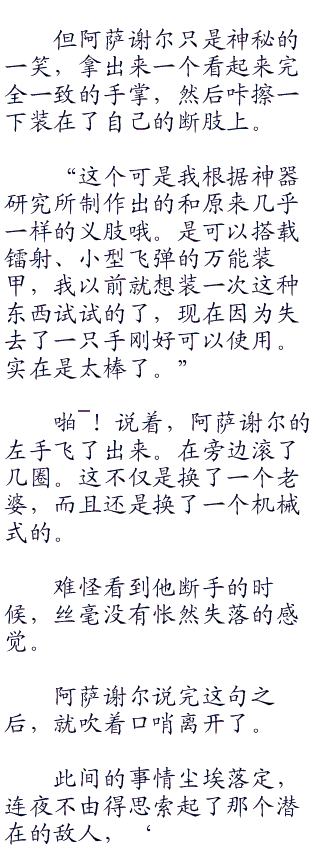 但阿萨谢尔只是神秘的
一笑，拿出来一个看起来完
全一致的手掌，然后咔擦一
下装在了自己的断肢上。
“这个可是我根据神器
研究所制作出的和原来几乎
一样的义肢哦。是可以搭载
镭射、小型飞弹的万能装
甲，我以前就想装一次这种
东西试试的了，现在因为失
去了一只手刚好可以使用。
实在是太棒了。”
啪¯！说着，阿萨谢尔的
左手飞了出来。在旁边滚了
几圈。这不仅是换了一个老
婆，而且还是换了一个机械
式的。
难怪看到他断手的时
候，丝毫没有怅然失落的感
觉。
阿萨谢尔说完这句之
后，就吹着口哨离开了。
此间的事情尘埃落定，
连夜不由得思索起了那个潜
在的敌人，‘